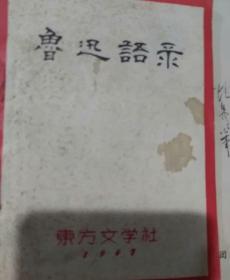 魯迅語录
東方文学社
1967